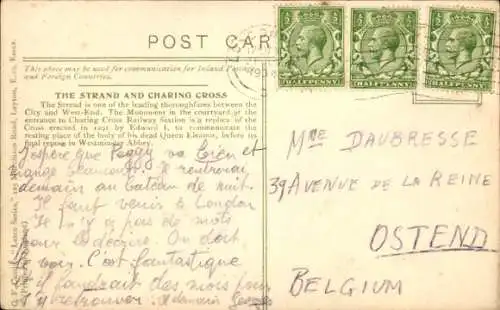 POST CARD
HALFPENNY HALFPENNY HALFPENNY
This space may be used for communication for Inland Postage
and Foreign Countries.
THE STRAND AND CHARING CROSS
The Strand is one of the leading thoroughfares between the
City and West-End. The Monument in the courtyard at the
entrance to Charing Cross Railway Station is a replace of the
Cross erected in 1291 by Edward I, to commemorate the
resting place of the body of his dead Queen Eleanor, before its
final repose in Westminster Abbey.
J'espère que Peggy va bien et
mange beaucoup. Je rentrerai
demain au bateau de nuit.
Il faut venir à London
Il n'y a pas de mots
pour le décrire. On doit
le voir. C'est fantastique
il faudrait des mois pour
s'y retrouver. A demain Georges
Mme DAUBRESSE
39 AVENUE DE LA REINE
OSTEND
BELGIUM